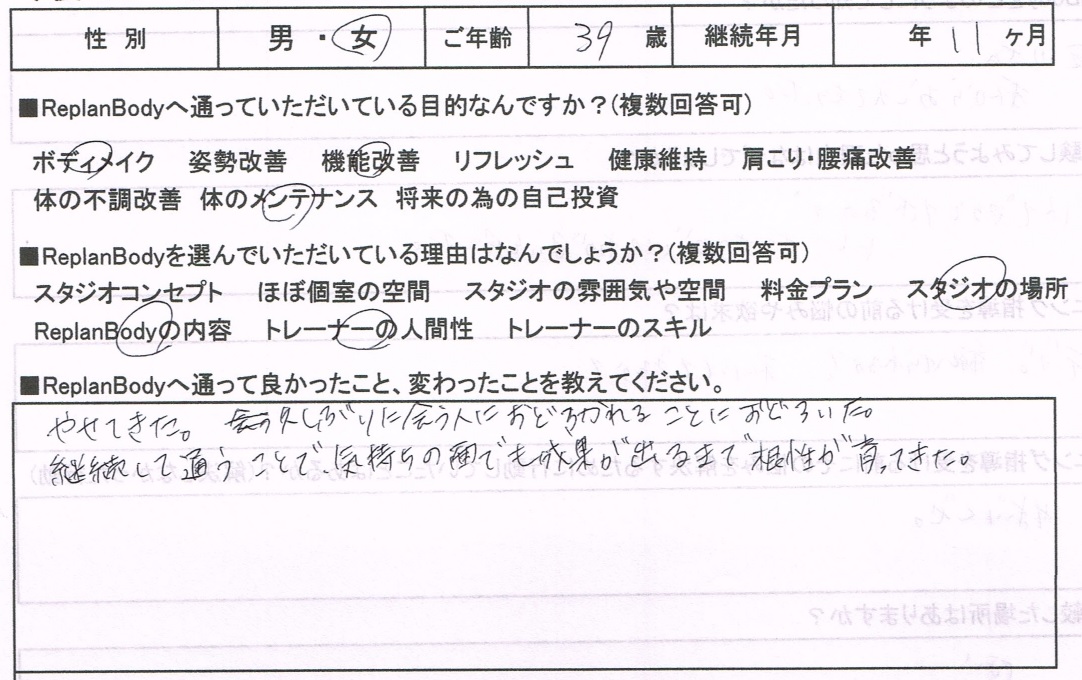 性別 男・女 ご年齢 39 歳 継続年月 年 11 ヶ月
■ReplanBodyへ通っていただいている目的なんですか？(複数回答可)
ボディメイク 姿勢改善 機能改善 リフレッシュ 健康維持 肩こり・腰痛改善
体の不調改善 体のメンテナンス 将来の為の自己投資
■ReplanBodyを選んでいただいている理由はなんでしょうか？(複数回答可)
スタジオコンセプト ほぼ個室の空間 スタジオの雰囲気や空間 料金プラン スタジオの場所
ReplanBodyの内容 トレーナーの人間性 トレーナーのスキル
■ReplanBodyへ通って良かったこと、変わったことを教えてください。
やせてきた。 久しぶりに会う人におどろかれることにおどろいた。
継続して通うことで気持ちの面でも成果が出るまで根性が育ってきた。